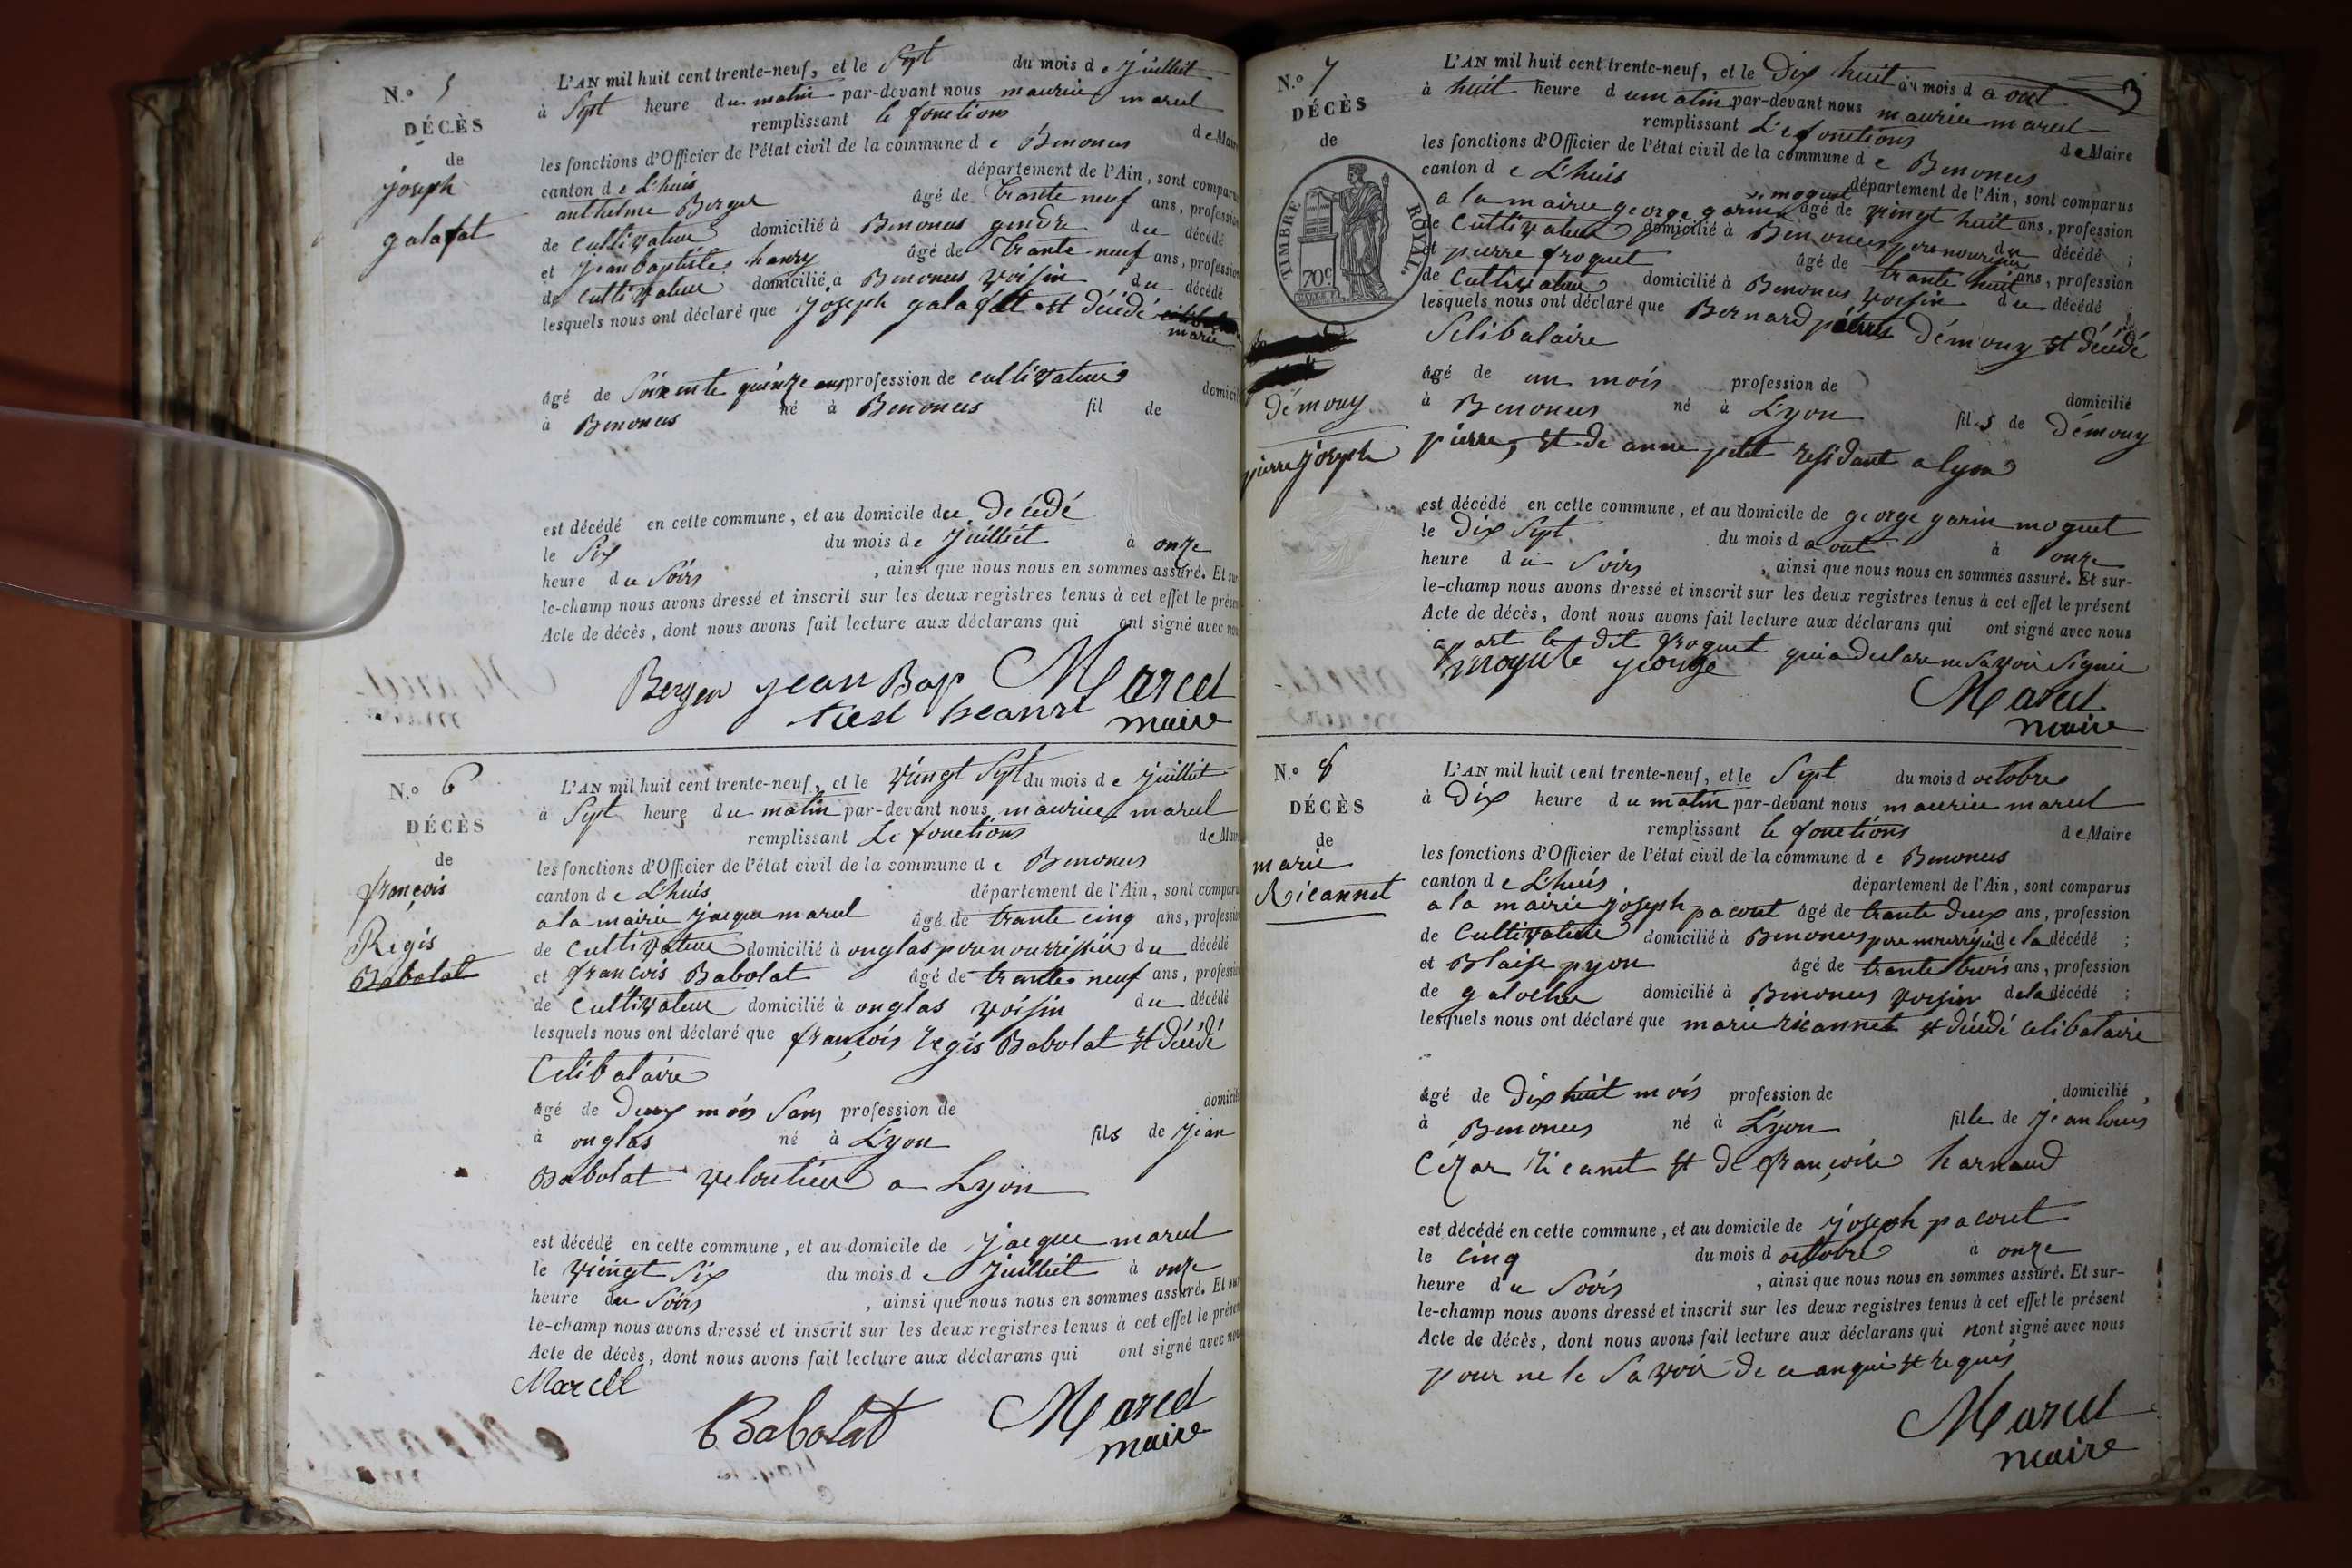 N.° 5
DÉCÈS
de
joseph
galafat
L'AN mil huit cent trente-neuf, et le Sept du mois de juillet
à Sept heure du matin par-devant nous maurice marcel
remplissant le fonctions de Maire
les fonctions d'Officier de l'état civil de la commune de Benonces
canton de L'huis département de l'Ain, sont comparus
anthelme Berger âgé de trante neuf ans, profession
de Cultivateur domicilié à Benonces gendre du décédé
et jean baptiste hanry âgé de trante neuf ans, profession
de Cultivateur domicilié à Benonces voisin du décédé
lesquels nous ont déclaré que joseph galafat est décédé
marié
âgé de Soixente quinze ans profession de cultivateur domicilié
à Benonces né à Benonces fil de
est décédé en cette commune, et au domicile du decédé
le Six du mois de juilliet à onze
heure du Soirs, ainsi que nous nous en sommes assuré. Et sur
le-champ nous avons dressé et inscrit sur les deux registres tenus à cet effet le présent
Acte de décès, dont nous avons fait lecture aux déclarans qui ont signé avec nous
Berger jean Bap Marcel
tiest heanri maire
N.° 6
DÉCÈS
de
françois
Regis
Babolat
L'AN mil huit cent trente-neuf, et le vingt Sept du mois de juillet
à Sept heure du matin par-devant nous maurice marcel
remplissant Le fonctions de Maire
les fonctions d'Officier de l'état civil de la commune de Benonces
canton de L'huis département de l'Ain, sont comparus
a la mairie jacque marcel âgé de trante cinq ans, profession
de Cultivateur domicilié à onglas pere nourrissier du décédé
et françois Babolat âgé de trante neuf ans, profession
de Cultivateur domicilié à onglas voisin du décédé
lesquels nous ont déclaré que françois regis Babolat est décédé
Celibataire
âgé de Deux mois Sans profession de domicilié
à onglas né à Lyon fils de jean
Babolat veloutier a Lyon
est décédé en cette commune, et au domicile de jacque marcel
le viengt Six du mois de juilliet à onze
heure du Soirs, ainsi que nous nous en sommes assuré. Et sur
le-champ nous avons dressé et inscrit sur les deux registres tenus à cet effet le présent
Acte de décès, dont nous avons fait lecture aux déclarans qui ont signé avec nous
Marcel
Babolat Marcel
maire
N.° 7
DÉCÈS
de
TIMBRE ROYAL.
70c
démouy
pierre joseph
3
L'AN mil huit cent trente-neuf, et le Dix huit du mois d aout
à huit heure du matin par-devant nous maurice marcel
remplissant Le fonctions de Maire
les fonctions d'Officier de l'état civil de la commune de Benonces
canton de L'huis département de l'Ain, sont comparus
a la mairie george garin moquet âgé de vingt huit ans, profession
de Cultivateur domicilié à Benonces pere nourissier du décédé ;
et pierre froquet âgé de trante huit ans, profession
de Cultivateur domicilié à Benonces voisin du décédé ;
lesquels nous ont déclaré que Bernard pierre Démouy est décédé
Selibataire
âgé de un mois profession de domicilié
à Benonces né à Lyon fils de Démouy
pierre, et de anne petit residant a lyon
est décédé en cette commune, et au domicile de george garin moquet
le Dix Sept du mois d aout à onze
heure du Soirs, ainsi que nous nous en sommes assuré. Et sur-
le-champ nous avons dressé et inscrit sur les deux registres tenus à cet effet le présent
Acte de décès, dont nous avons fait lecture aux déclarans qui ont signé avec nous
apart le dit froquet qui a declare ne Savoir Signie
moquete george
Marcel
maire
N.° 8
DÉCÈS
de
marie
Ricannet
L'AN mil huit cent trente-neuf, et le Sept du mois d octobre
à Dix heure du matin par-devant nous maurice marcel
remplissant le fonctions de Maire
les fonctions d'Officier de l'état civil de la commune de Benonces
canton de L'huis département de l'Ain, sont comparus
a la mairie joseph pacout âgé de trante deux ans, profession
de Cultivateur domicilié à Benonces pere nourrissier de la décédé ;
et Blaise pyon âgé de trante trois ans, profession
de galocher domicilié à Benonces voisin de la décédé ;
lesquels nous ont déclaré que marie ricannet est décédé celibataire
âgé de Dix huit mois profession de domicilié
à Benonces né à Lyon fille de jean louis
Cézar ricanet et de françoise harnaud
est décédé en cette commune, et au domicile de joseph pacout
le cinq du mois d octobre à onze
heure du Soirs, ainsi que nous nous en sommes assuré. Et sur-
le-champ nous avons dressé et inscrit sur les deux registres tenus à cet effet le présent
Acte de décès, dont nous avons fait lecture aux déclarans qui nont signé avec nous
pour ne le Savoir de ce anqui et requis
Marcel
maire